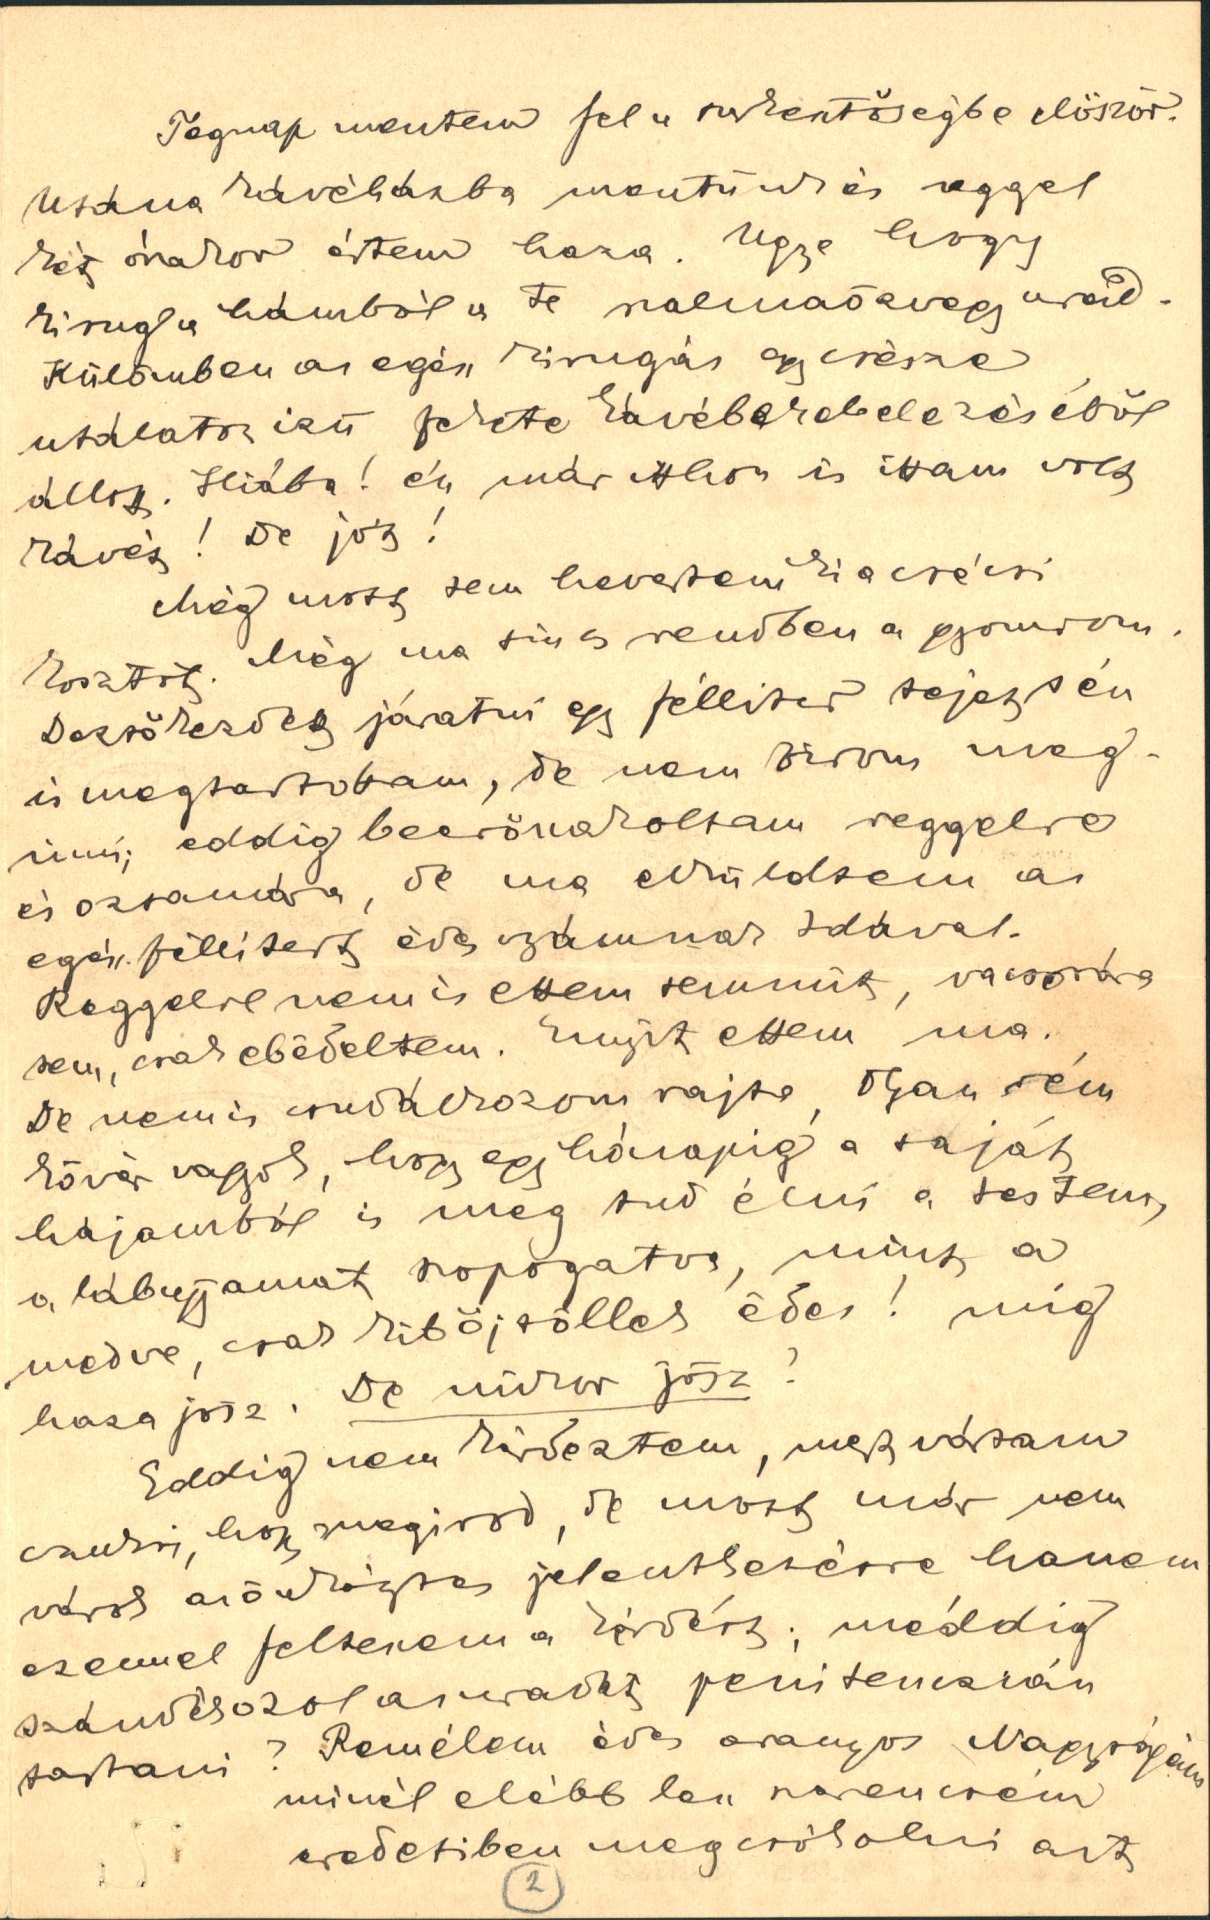 Tegnap mentem fel a szerkentőségbe először.
Utána kávéházba mentünk és reggel
két órakor értem haza. Ugye hogy
kirug a hámból a te szalmaözvegy urad.
Külömben az egész kirugás egy csésze
utálatos izü fekete kávé bekebelezéséből
állott. Hiába! én már itthon is ittam volt
kávét! De jót!
Még most sem hevertem ki a csécsi
kosztot. Még ma sincs rendben a gyomrom.
Dezső kezdett járatni egy félliter tejet s én
is megtartottam, de nem birom meg-
inni; eddig beerőszakoltam reggelre
és ozsonnára, de ma elküldtem az
egész fél litert édes uzsámnak Idával.
Reggelre nem is ettem semmit, vacsorára
sem, csak ebédeltem. Ennyit ettem ma.
De nem is csudálkozom rajta, olyan rém
kövér vagyok, hogy egy hónapig a saját
hájamból is meg tud élni a testem,
a lábujjamat szopogatva, mint a
medve, csak kibőjtöllek édes! míg
haza jösz. De mikor jösz?
Eddig nem kérdeztem, mert vártam
czukri, hogy megirod, de most már nem
várok az önkéntes jelentkezésre hanem
ezennel felteszem a kérdést; meddig
szándékozol az uradat penitenczián
tartani? Remélem édes aranyos Nagyságám
minél elébb lesz szerencsém
eredetiben megcsókolni azt
2